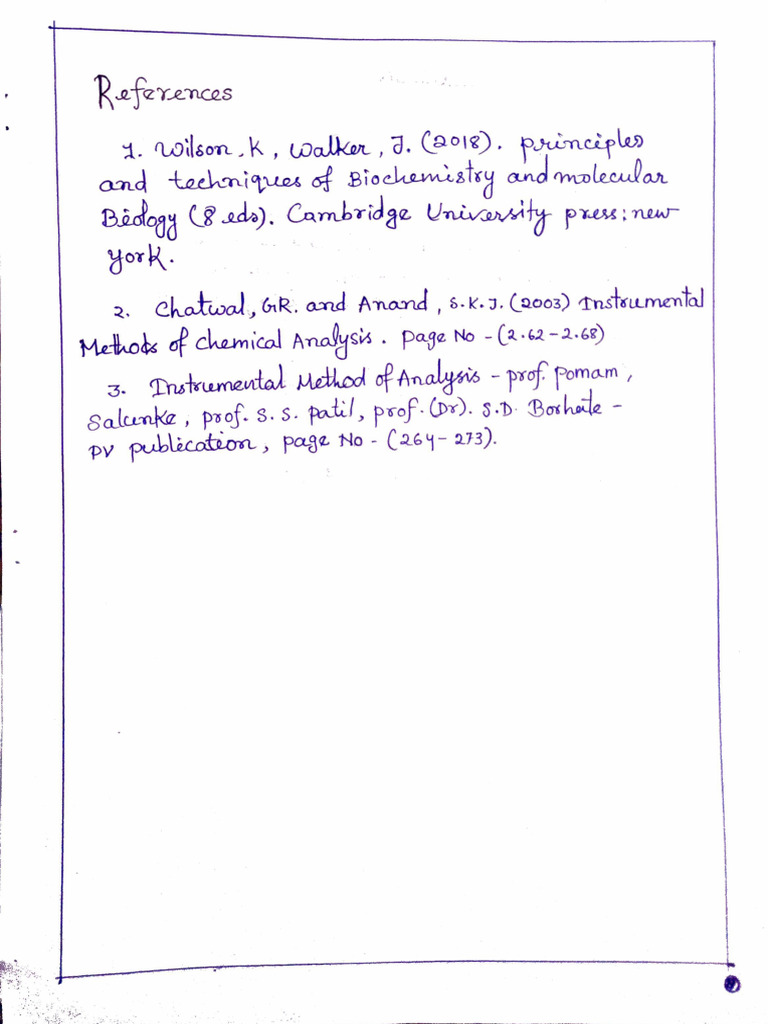 References
1. Wilson. K, Walker, J. (2018). principles
and techniques of Biochemistry and molecular
Biology (8 eds). Cambridge University press: new
york.
2. Chatwal, GR. and Anand, S.K.J. (2003) Instrumental
Methods of Chemical Analysis. Page No - (2.62-2.68)
3. Instrumental Method of Analysis - prof. Pomam,
Salunke, prof. S. S. Patil, prof. (Dr). S.D. Borhate -
PV publication, page No - (264-273).